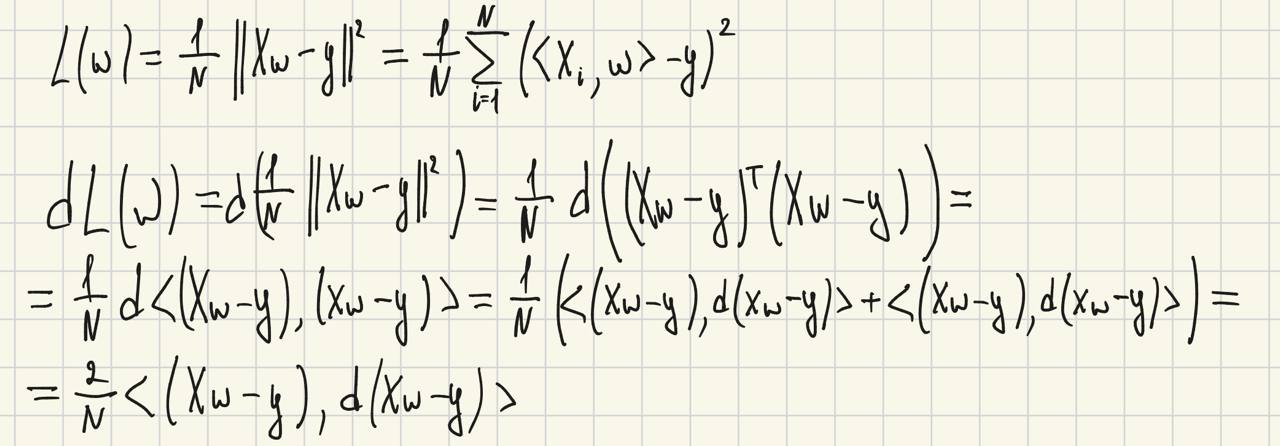 L(w) = 1/N ||Xw - y||² = 1/N ∑_{i=1}^{N} (<X_i, w> - y)²
dL(w) = d(1/N ||Xw - y||²) = 1/N d((Xw - y)^T (Xw - y)) =
= 1/N d<(Xw - y), (Xw - y)> = 1/N (<(Xw - y), d(Xw - y)> + <(Xw - y), d(Xw - y)>) =
= 2/N <(Xw - y), d(Xw - y)>